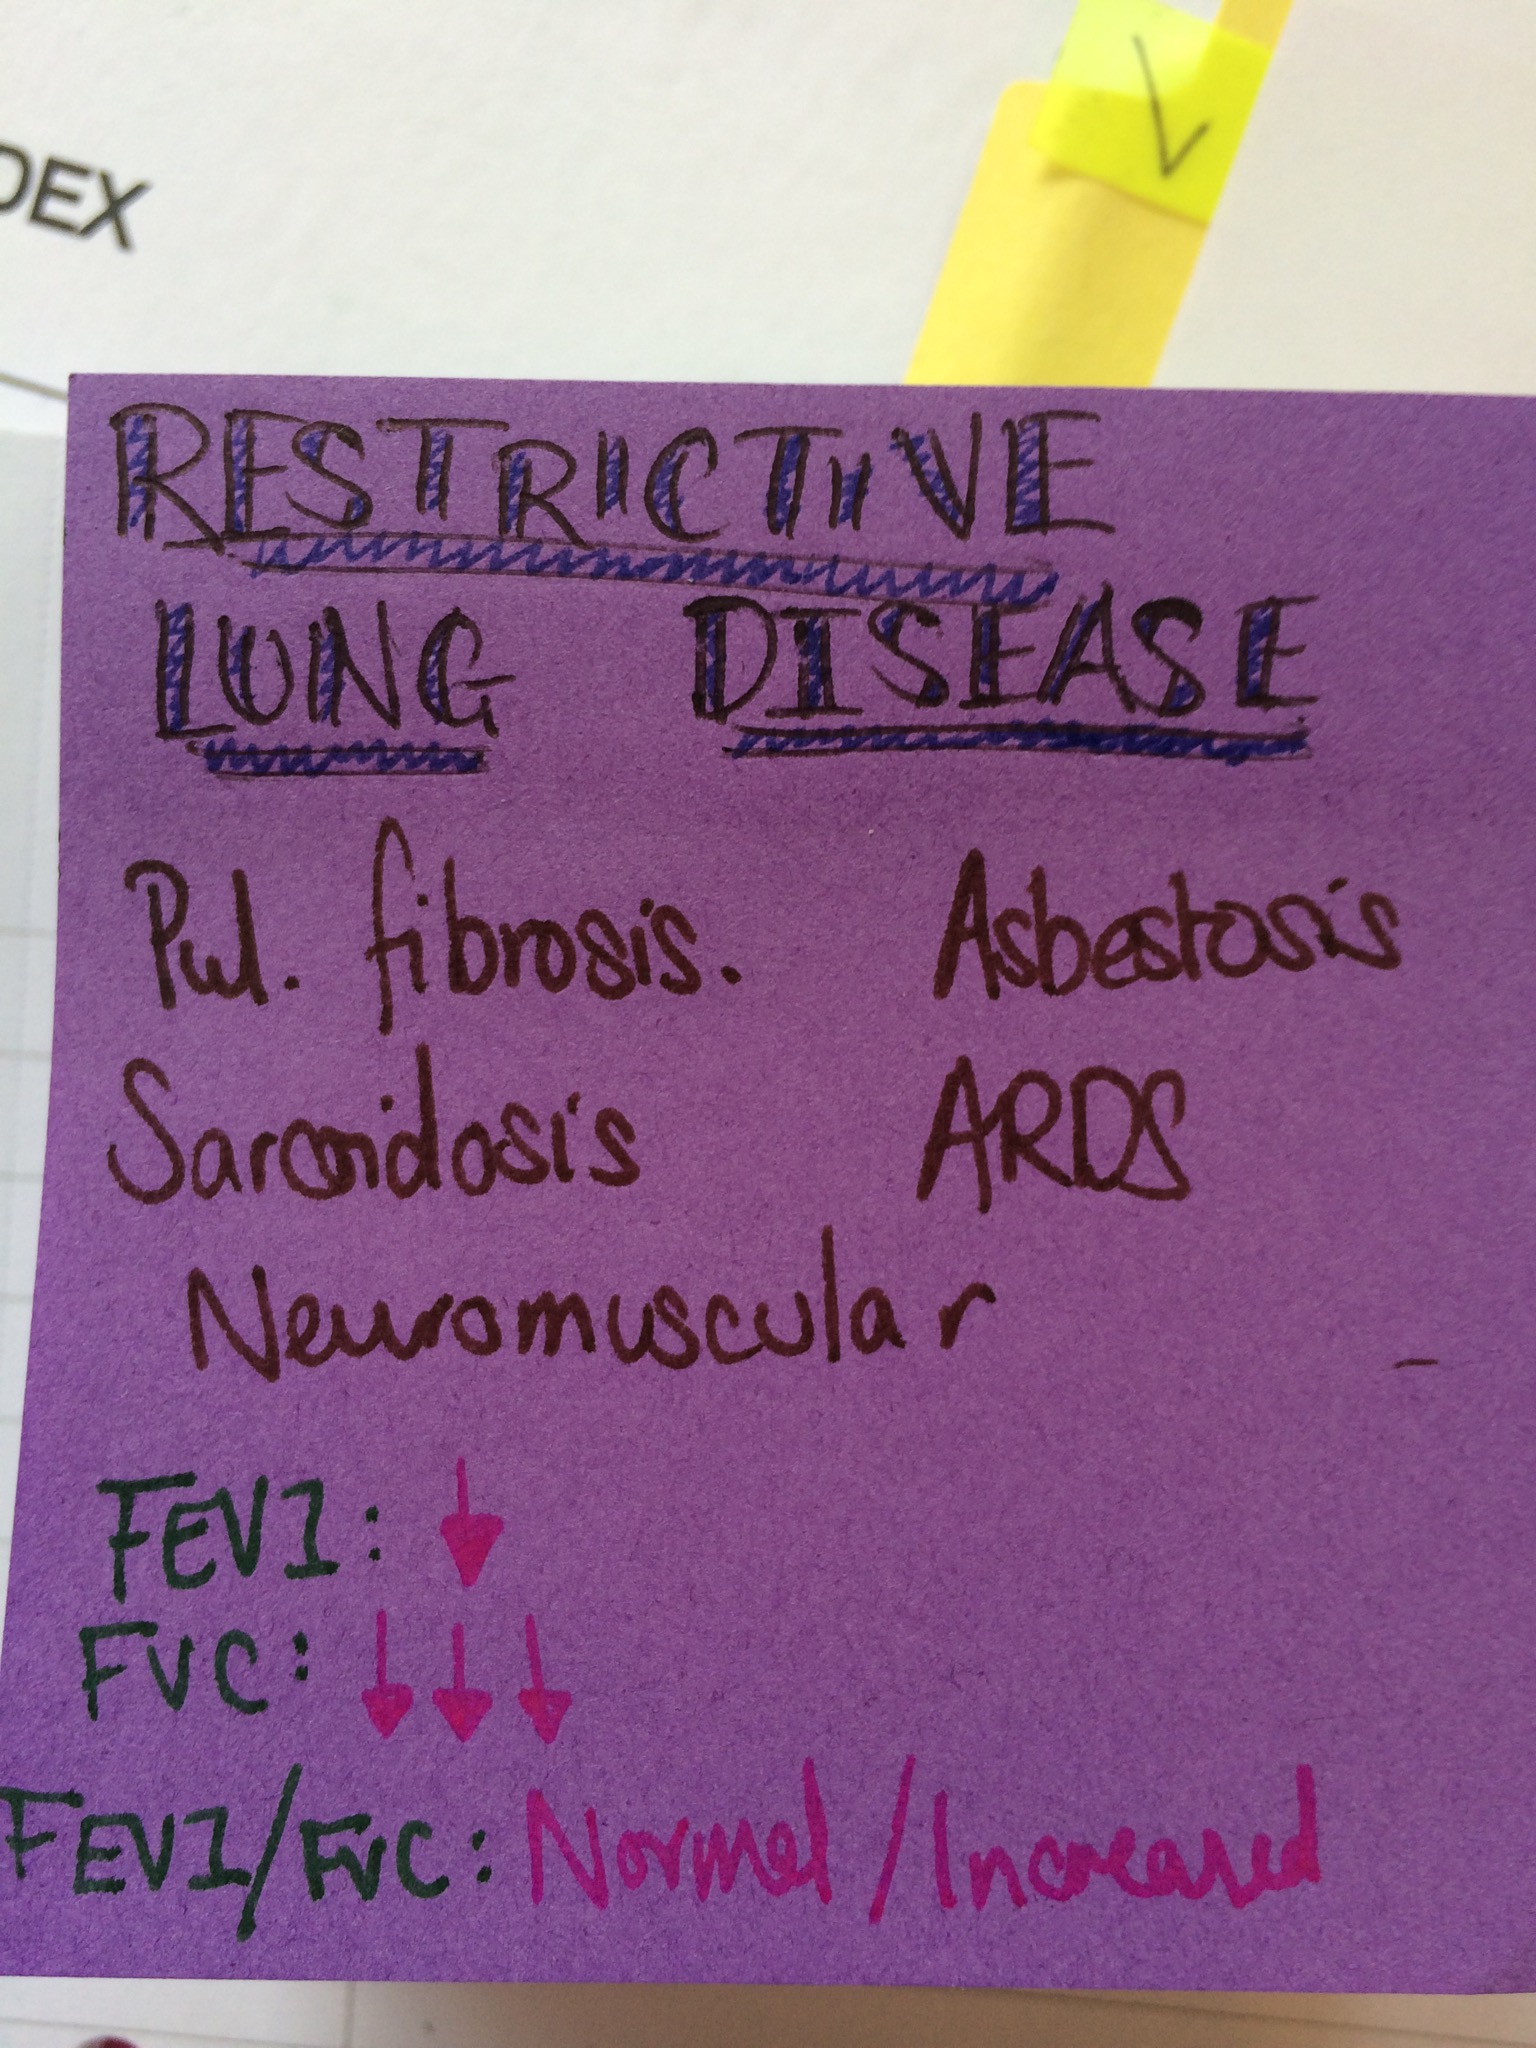 DEX
V
RESTRICTIVE
LUNG DISEASE
Pul. fibrosis. Asbestosis
Sarcoidosis ARDS
Neuromuscular
FEV1: ↓
FVC: ↓↓↓
FEV1/FVC: Normal/Increased